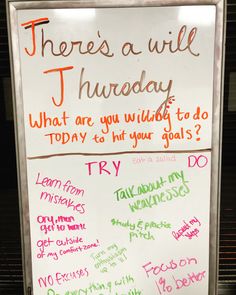 There's a will
Thursday
What are you willing to do
TODAY to hit your goals?
TRY
eat a salad
DO
Learn from
mistakes
Talk about my
weaknesses
Study & practice
pitch
get outside
of my comfort zone!
Turn my
up to
Focus on
1% better
NO EXCUSES
everything with